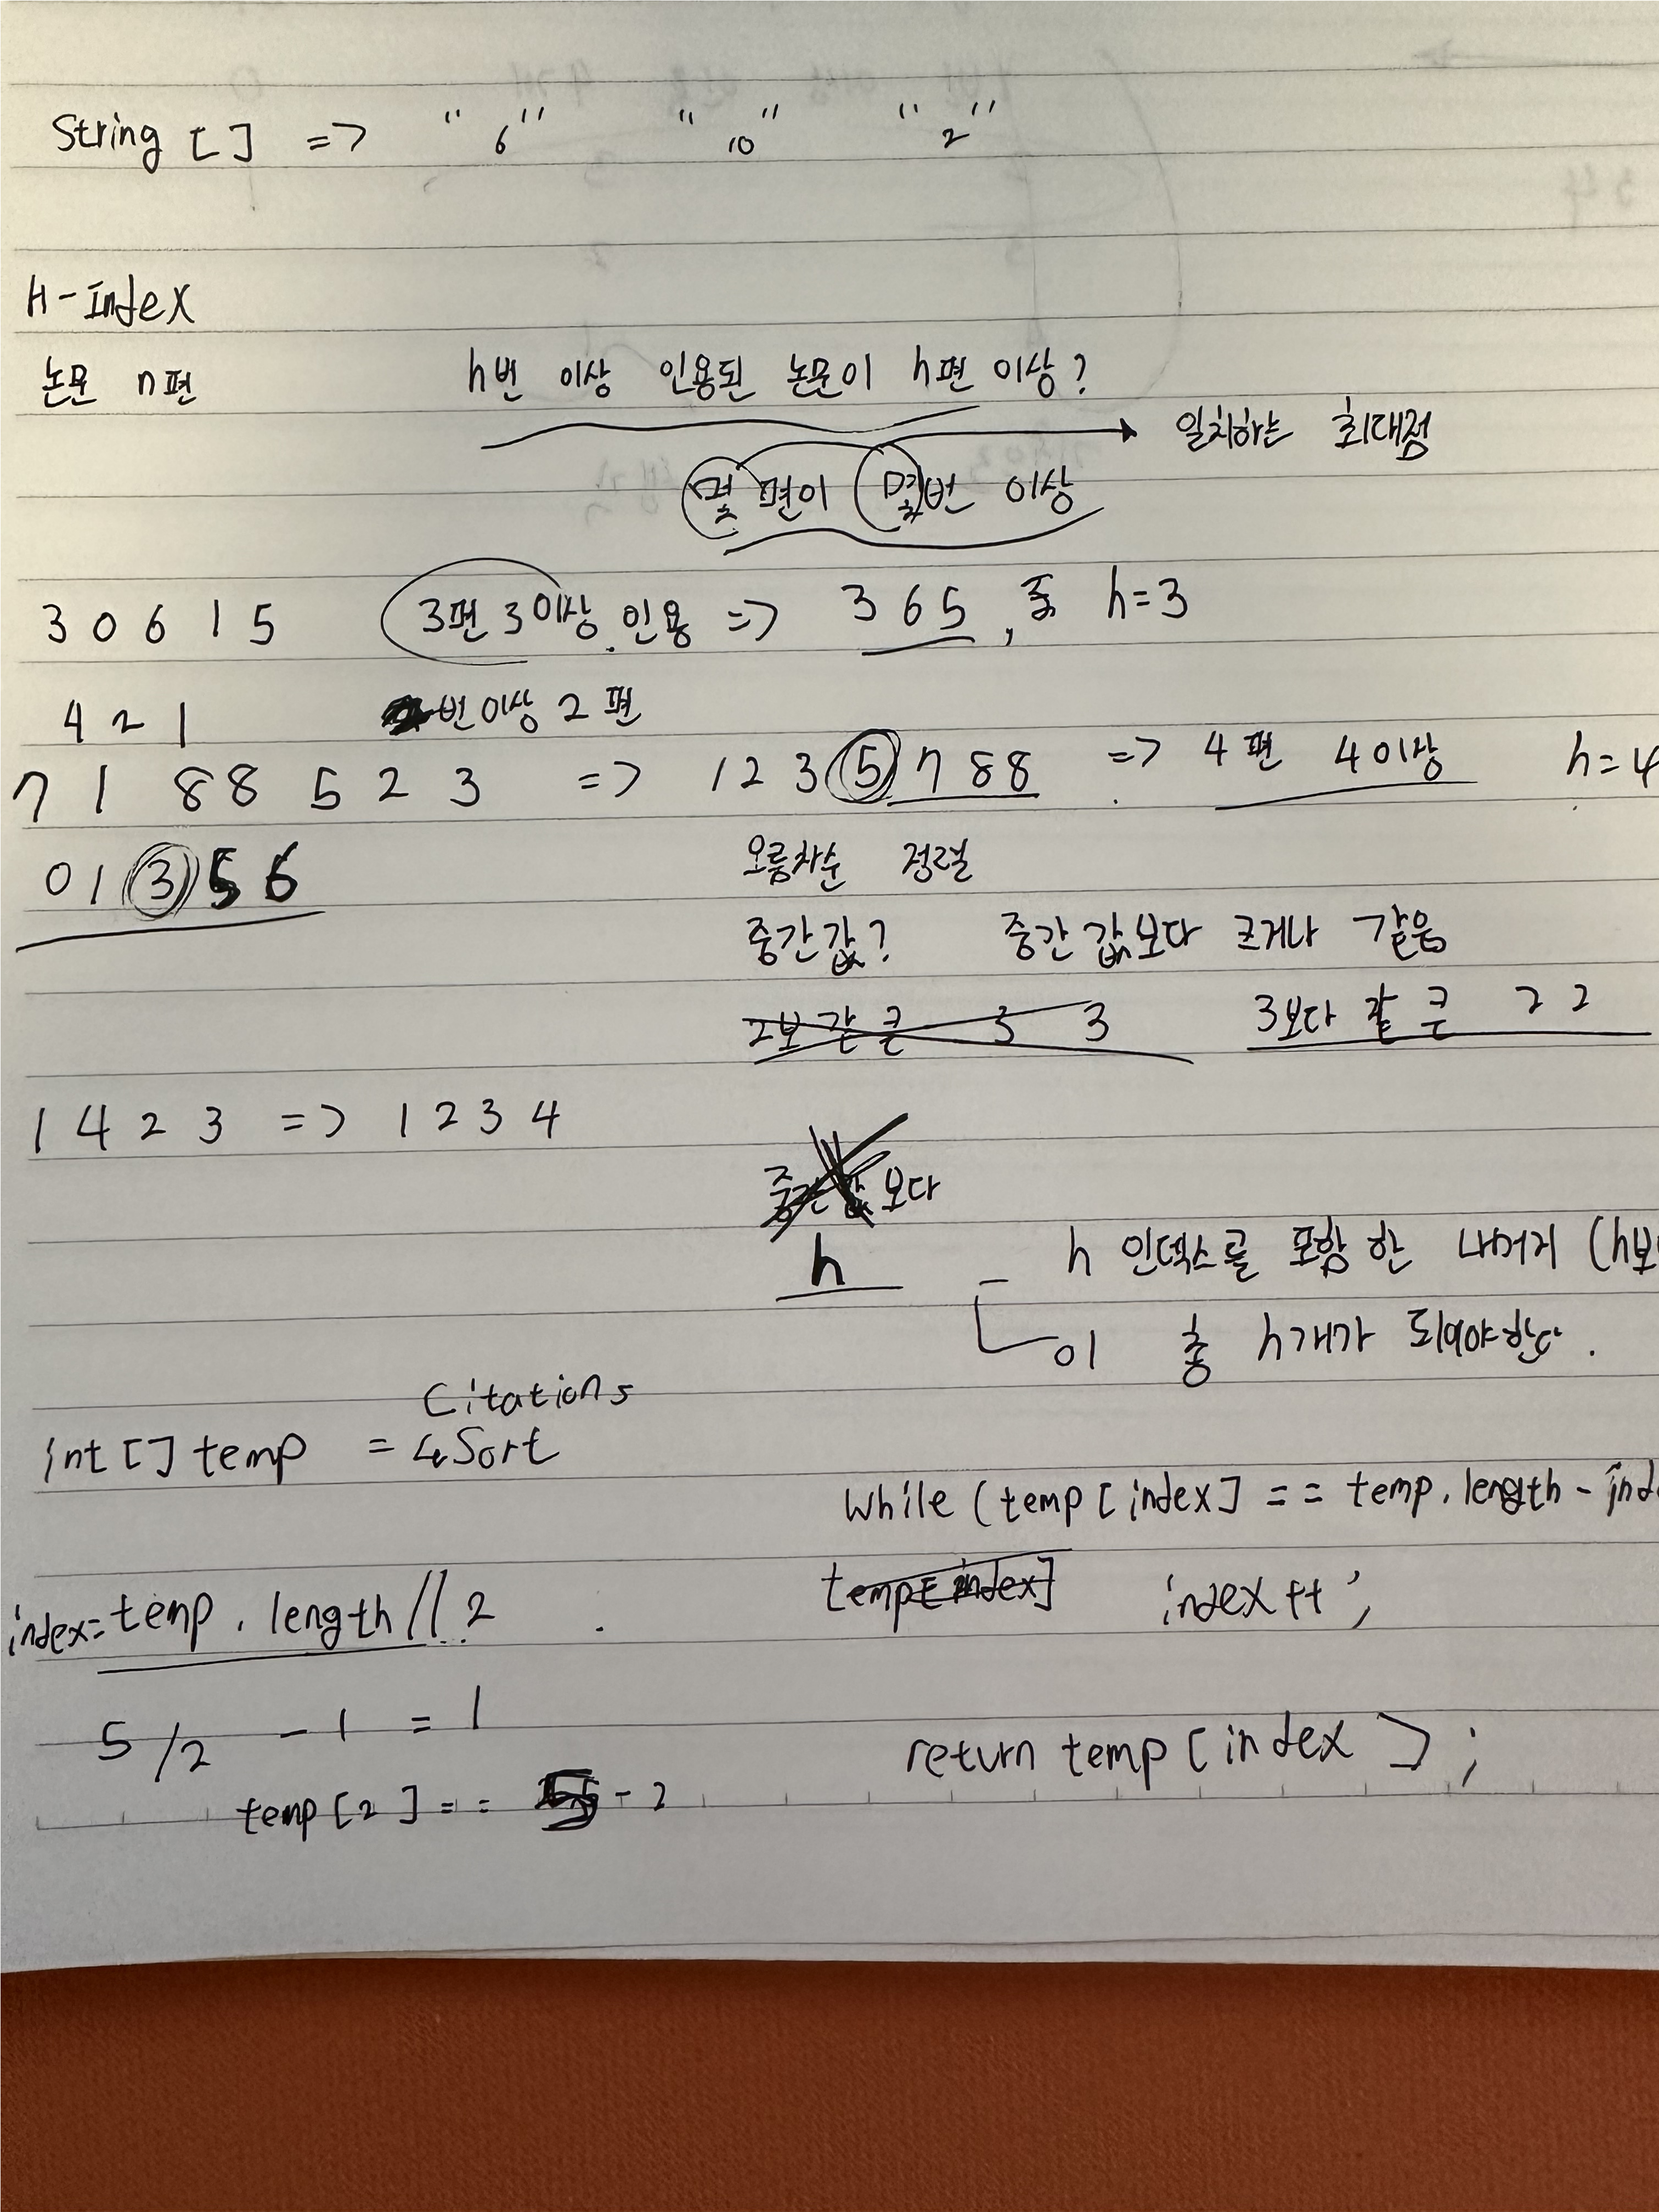 String [ ] => " 6 " " 10 " " 2 "
H-Index
논문 n편 h번 이상 인용된 논문이 h편 이상?
일치하는 최대점
몇 편이 몇번 이상
3 0 6 1 5 3편 3이상 인용 => 3 6 5 , 종 h=3
4 2 1 번이상 2 편
7 1 8 8 5 2 3 => 1 2 3 5 7 8 8 => 4편 4이상 h=4
0 1 3 5 6
오름차순 정렬
중간값? 중간값보다 크거나 같음
2보 같 큰 3 3 3보다 같 큰 2 2
1 4 2 3 => 1 2 3 4
중간값보다
h - h 인덱스를 포함한 나머지 (h보
이 총 h개가 되어야한다.
Citations
int [] temp = Sort
while (temp [index] == temp.length - inde
index = temp.length // 2 temp[index] index++;
5/2 - 1 = 1
return temp [index];
temp [2] == 5 - 2